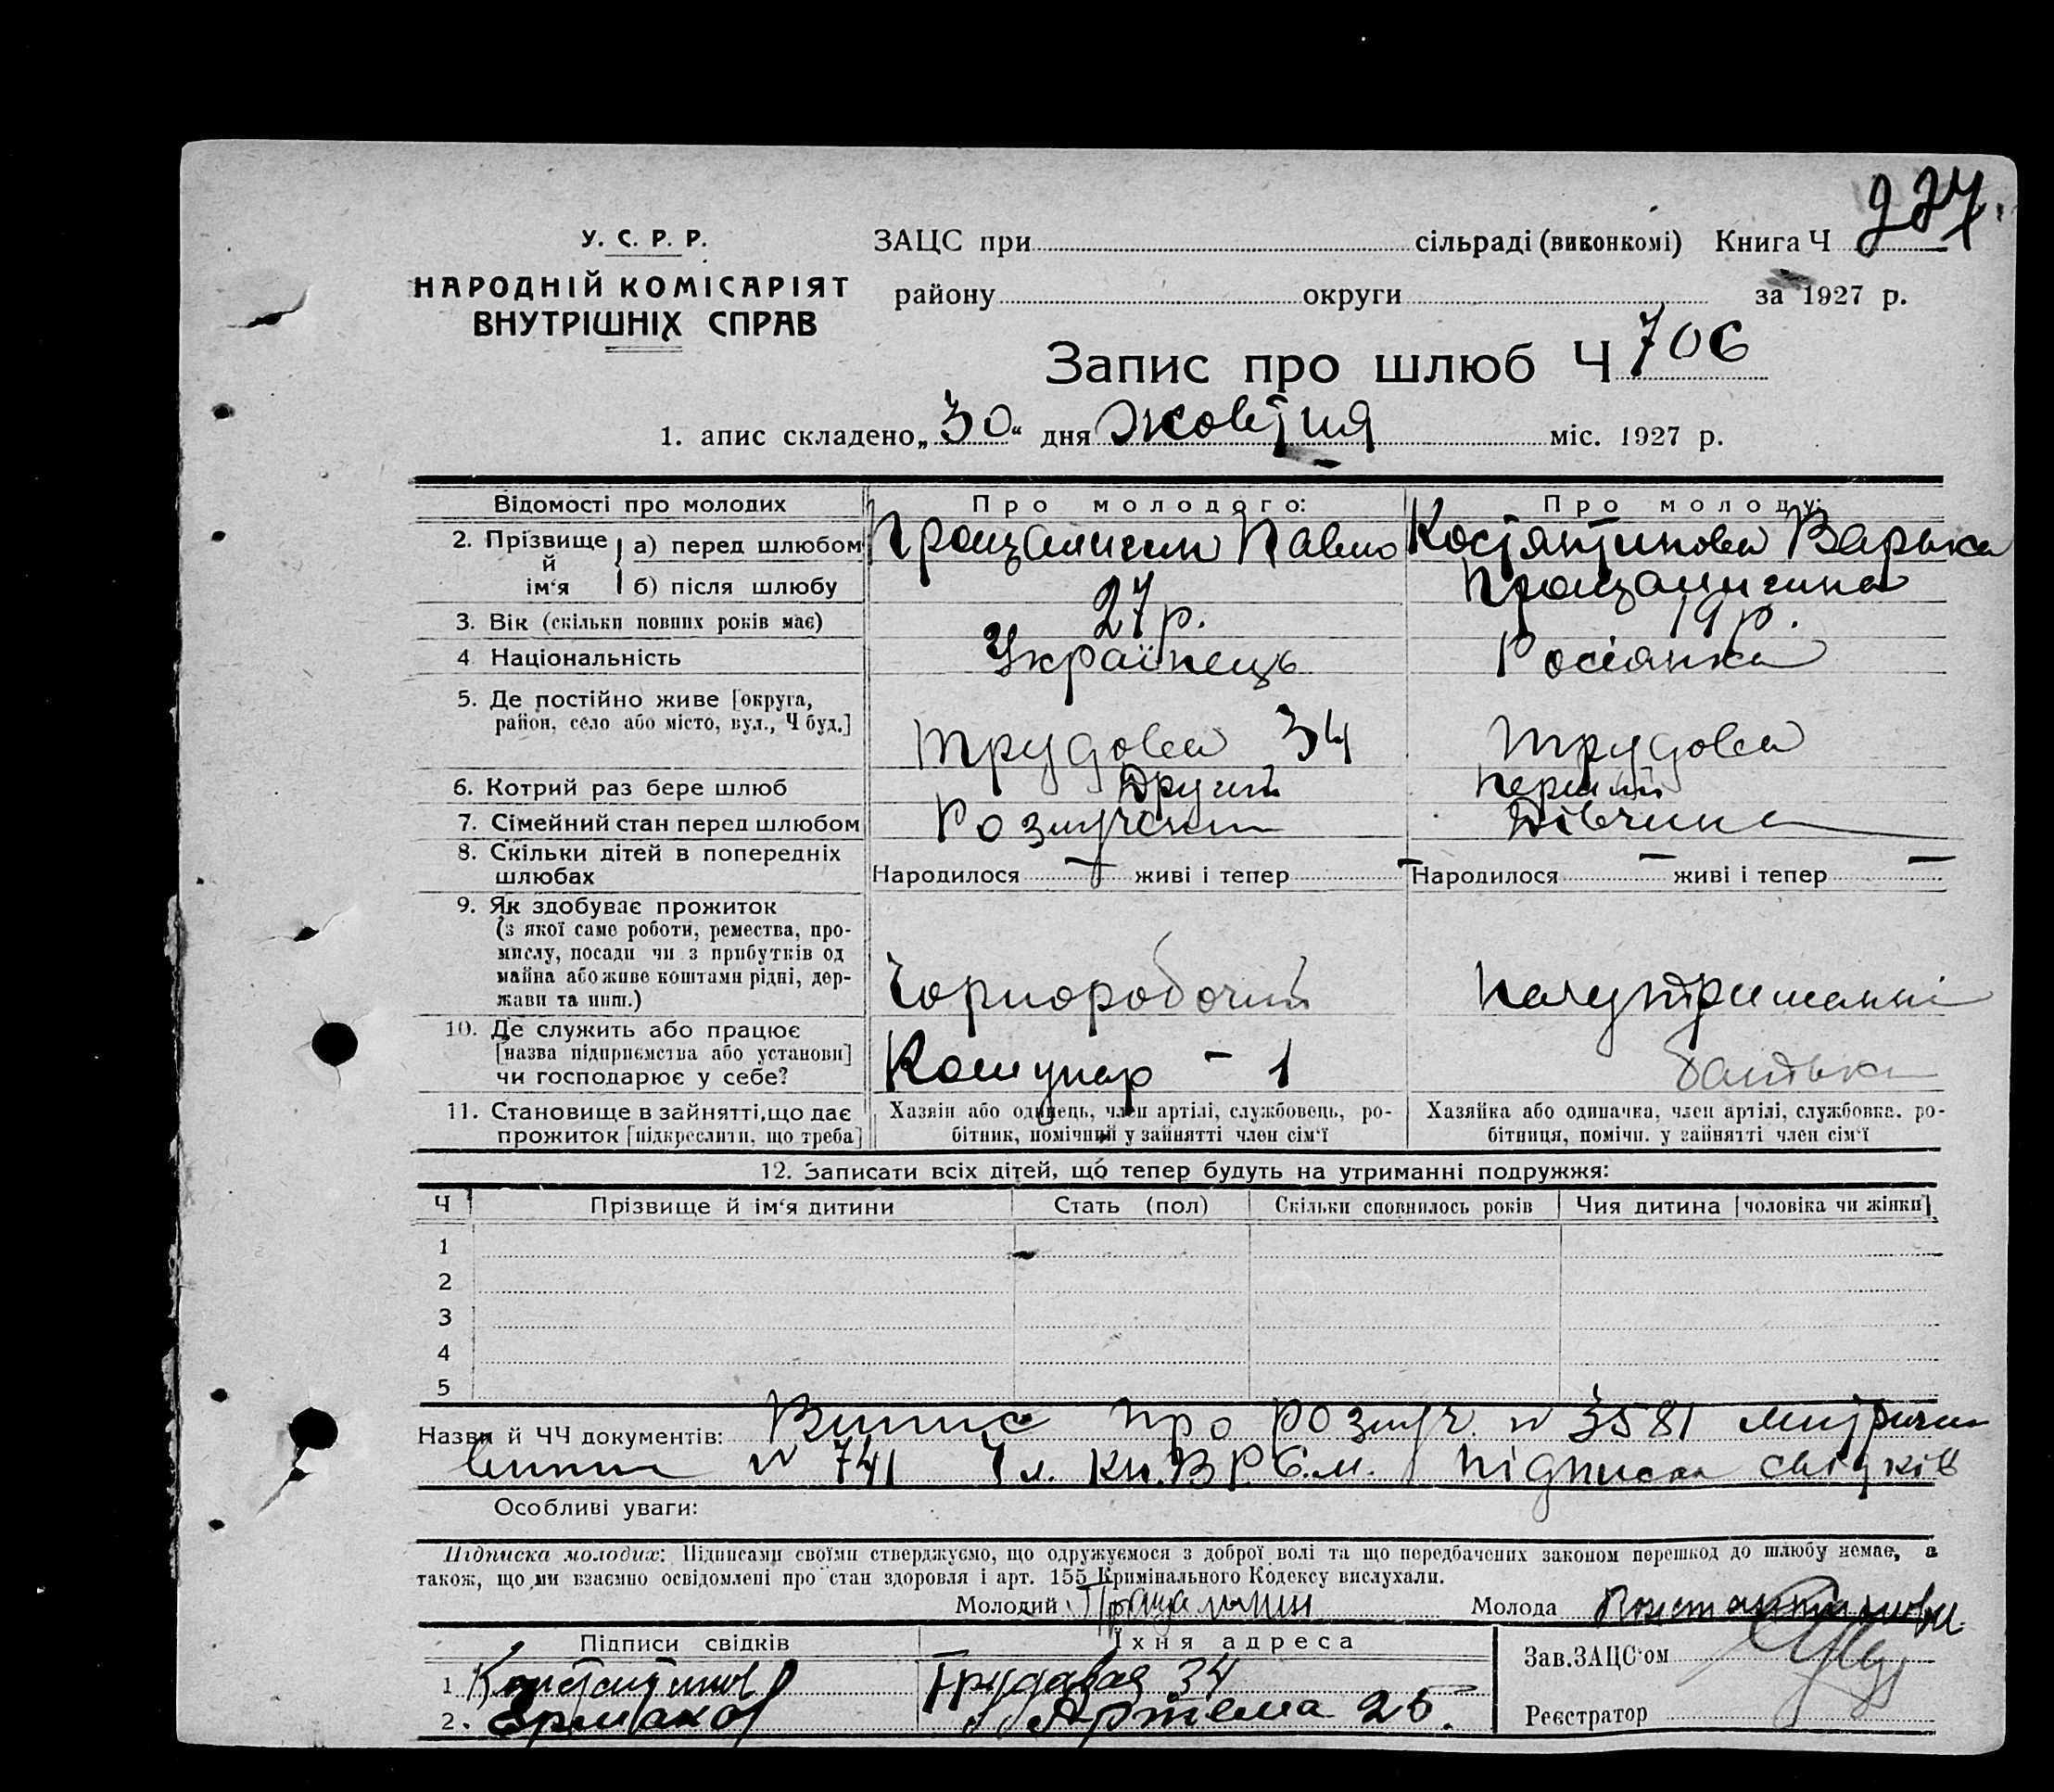 227.
У. С. Р. Р.
НАРОДНІЙ КОМІСАРІЯТ
ВНУТРІШНІХ СПРАВ
ЗАЦС при сільраді (виконкомі) Книга Ч
району округи за 1927 р.
Запис про шлюб Ч 706
1. апис складено „30“ дня Жовтня міс. 1927 р.
Відомості про молодих Про молодого: Про молоду:
2. Прізвище й ім‘я
а) перед шлюбом Павло Костянтинова Варька
б) після шлюбу
3. Вік (скільки повних років має) 27 р. 19 р.
4 Національність Українець Росіянка
5. Де постійно живе [округа,
район, село або місто, вул., Ч буд.] Трудова 34 Трудова
6. Котрий раз бере шлюб Другий Перший
7. Сімейний стан перед шлюбом Розлучений Дівчина
8. Скільки дітей в попередніх
шлюбах Народилося — живі і тепер — Народилося — живі і тепер —
9. Як здобуває прожиток
(з якої саме роботи, ремества, про-
мислу, посади чи з прибутків од
майна або живе коштами рідні, дер-
жави та инш.) Чорноробочий На утриманні
10. Де служить або працює
[назва підприємства або установи]
чи господарює у себе? Комунар - 1 батька
11. Становище в зайнятті, що дає
прожиток [підкреслити, що треба]
Хазяін або одинець, член артілі, службовець, ро-
бітник, помічний у зайнятті член сім‘ї
Хазяйка або одиначка, член артілі, службовка. ро-
бітниця, помічн. у зайнятті член сім‘ї
12. Записати всіх дітей, що тепер будуть на утриманні подружжя:
Ч Прізвище й ім‘я дитини Стать (пол) Скільки сповнилось років Чия дитина [чоловіка чи жінки]
1
2
3
4
5
Назви й ЧЧ документів: Випис про розлуч. № 3581 метричн
випис № 741 підписка свідків
Особливі уваги:
Підписка молодих: Підписами своїми стверджуємо, що одружуємося з доброї волі та що передбачених законом перешкод до шлюбу немає, а
також, що ми взаємно освідомлені про стан здоровля і арт. 155 Кримінального Кодексу вислухали.
Молодий Молода
Підписи свідків Їхня адреса
Зав. ЗАЦС‘ом
1 Константинов Трудавая 34
2. Ермаков Артема 25.
Реєстратор